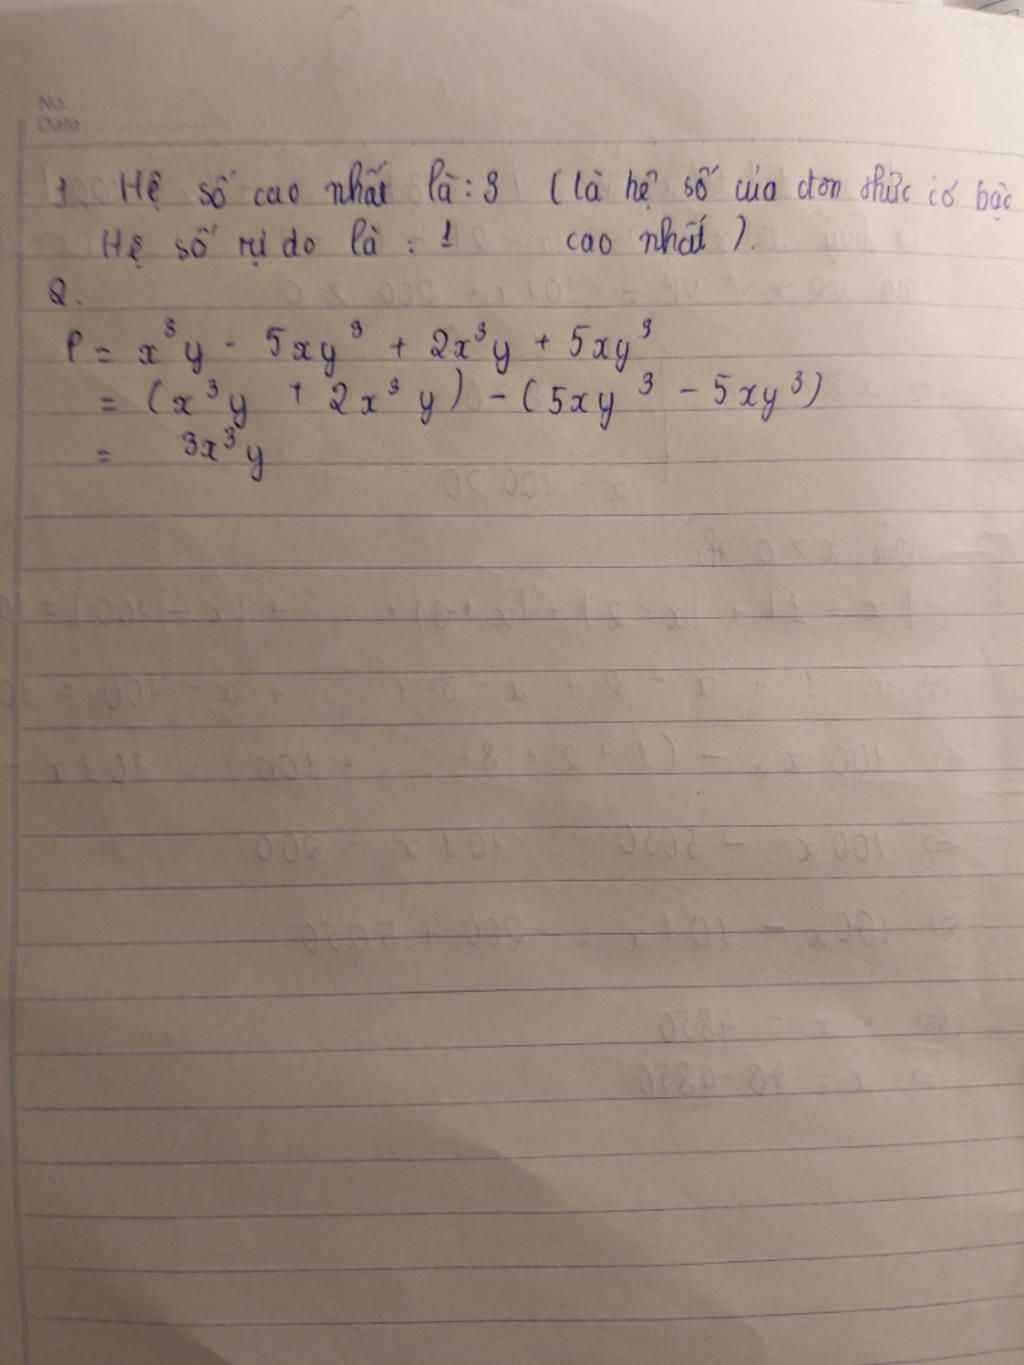 No. ........
Date ..................
1. Hệ số cao nhất là: 3 (là hệ số của đơn thức có bậc
Hệ số tự do là: 1 cao nhất).
2.
P = x³y - 5xy³ + 2x³y + 5xy³
= (x³y + 2x³y) - (5xy³ - 5xy³)
= 3x³y